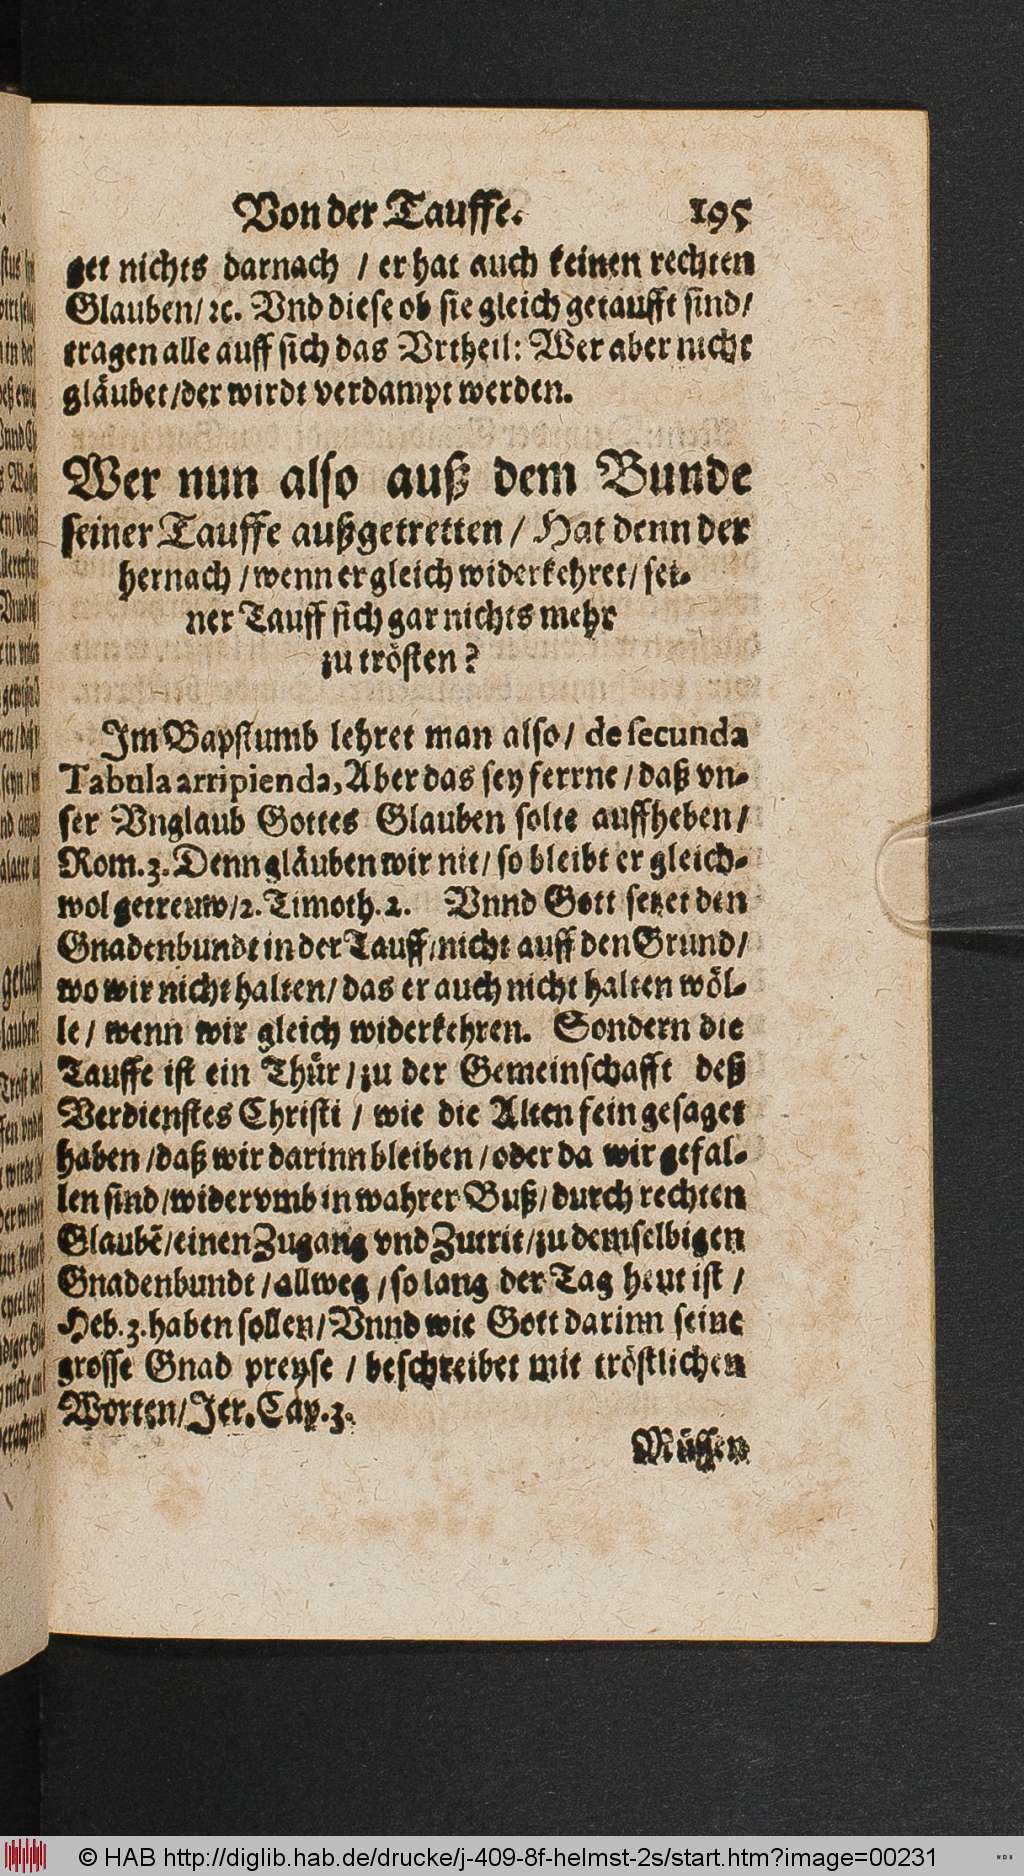 Von der Tauffe. 195
get nichts darnach / er hat auch keinen rechten
Glauben / ꝛc. Vnd diese ob sie gleich getaufft sind /
tragen alle auff sich das Vrtheil: Wer aber nicht
gläubet / der wirdt verdampt werden.
Wer nun also auß dem Bunde
seiner Tauffe außgetretten / Hat denn der
hernach / wenn er gleich widerkehret / sei-
ner Tauff sich gar nichts mehr
zu trösten?
Im Bapstumb lehret man also / de secunda
Tabula arripienda, Aber das sey ferrne / daß vn-
ser Vnglaub Gottes Glauben solte auffheben /
Rom. 3. Denn gläuben wir nit / so bleibt er gleich-
wol getreuw / 2. Timoth. 2. Vnnd Gott setzet den
Gnadenbundt in der Tauff / nicht auff den Grund /
wo wir nicht halten / das er auch nicht halten wöl-
le / wenn wir gleich widerkehren. Sondern die
Tauffe ist ein Thür / zu der Gemeinschafft deß
Verdienstes Christi / wie die Alten fein gesaget
haben / daß wir darinn bleiben / oder da wir gefal-
len sind / wider vmb in wahrer Buß / durch rechten
Glaubẽ / einen Zugang vnd Zutrit / zu demselbigen
Gnadenbundt / allweg / so lang der Tag heut ist /
Heb. 3. haben sollen / Vnnd wie Gott darinn seine
grosse Gnad preyse / beschreibet mit tröstlichen
Worten / Jer. Cap. 3.
Müssen
© HAB http://diglib.hab.de/drucke/j-409-8f-helmst-2s/start.htm?image=00231